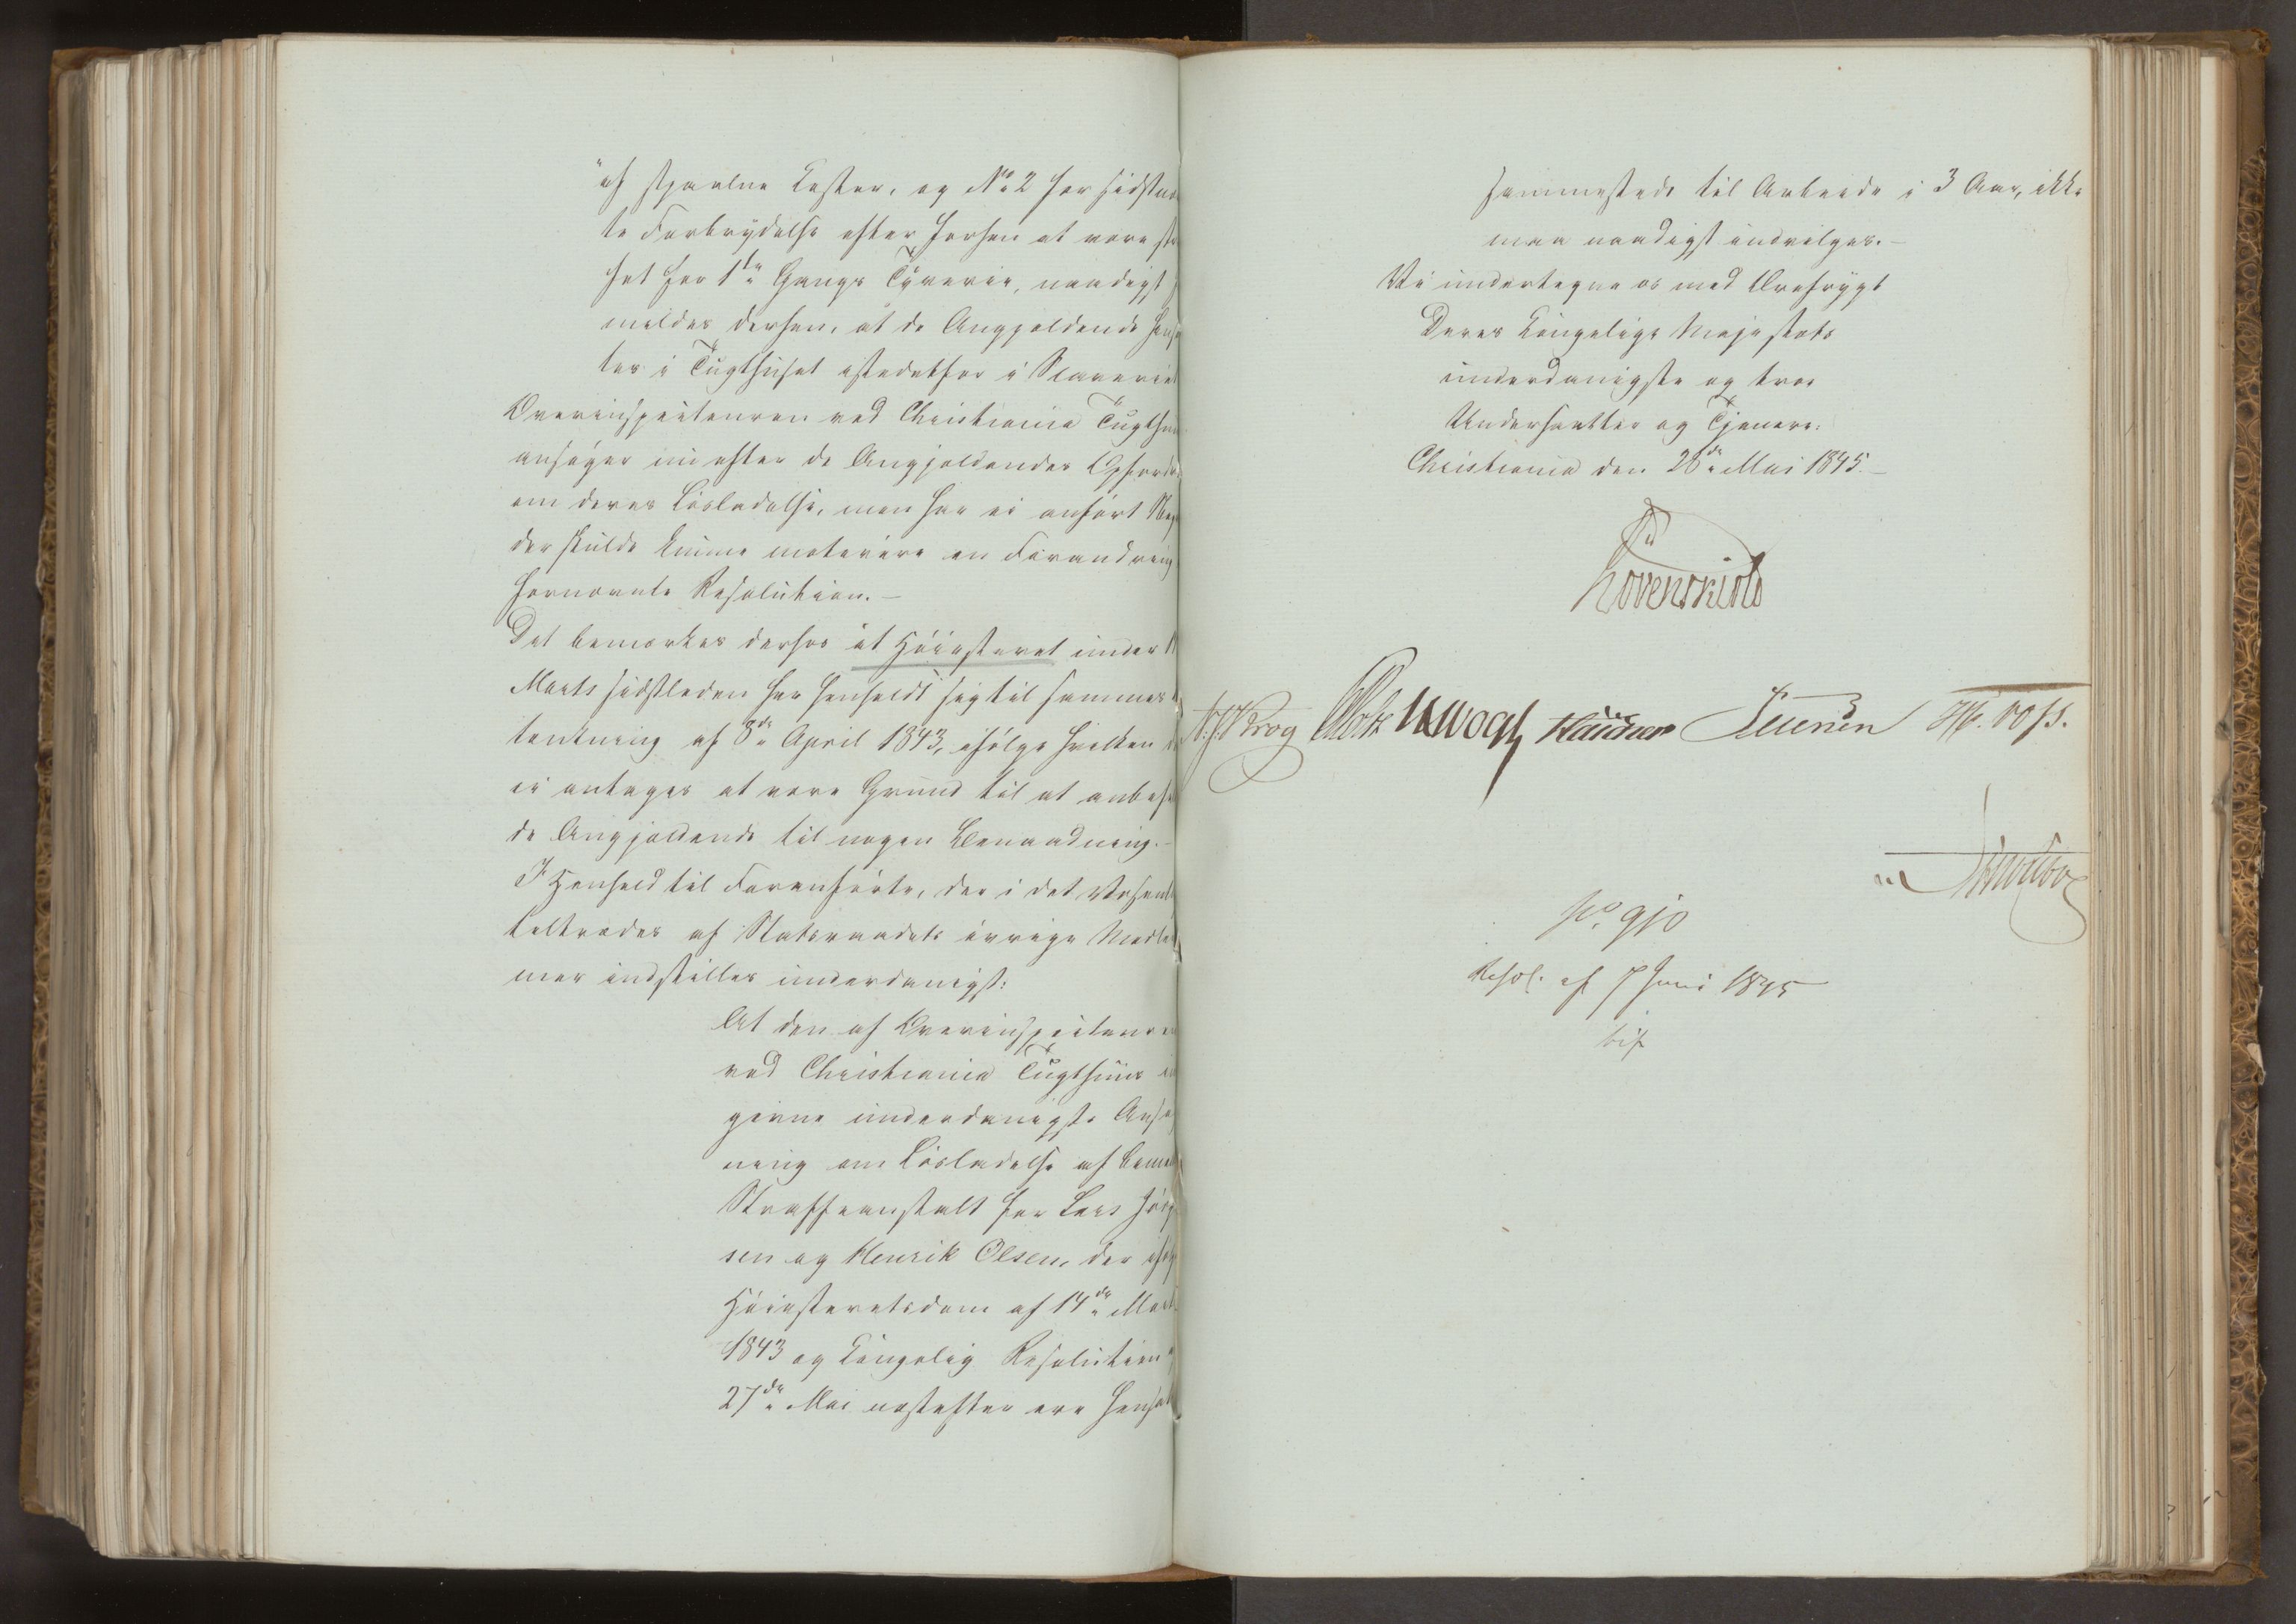 "af stjaalne Koster, og No 2 for sidstnæv
te Forbrydelse efter forhen at være stra
fet for 1ste Gangs Tyverie, naadigst
meldes derhen, at de Angjældende hensæ
tes i Tugthuset istedetfor i Slaveriet
Overinspecteuren ved Christiania Tugthuus
ansøger nu efter de Angjældendes Opfordr
om deres Løsladelse, men har ei anført Noget
der skulde kunne motivere en Forandring
fornævnte Resolution.-
Det bemærkes derhos at Høiesteret under 11
Marts sidstleden har henholdt sig til sammes
tænkning af 8de April 1843, ifølge hvilken
ei antages at være Grund til at anbefale
de Angjældende til nogen Benaadning.-
I Henhold til Foranførte, der i det Væsentl
tiltrædes af Statsraadets øvrige Medlem
mer indstilles underdanigst:
At den af Overinspecteuren
ved Christiania Tugthuus in
givne underdanigste Ansøg
ning om Løsladelse af bemeldte
Straffeanstalt for Lars Jørg
sen og Henrik Olsen, der ifølge
Høiesteretsdom af 14de Marts
1843 og kongelig Resolution
27de Mai næstefter ere hensat
sammesteds til Arbeide i 3 Aar, ikke
maa naadigst indvilges.-
Vi undertegne os med Ærefrygt
Deres Kongelige Majestæts
underdanigste og troe
Undersaatter og Tjenere.
Christiania den 28de Mai 1845.-
Løvenskiold
Krog Holst Vogt Sibbern
No. 910
Resol. af 7 Juni 1845
bif